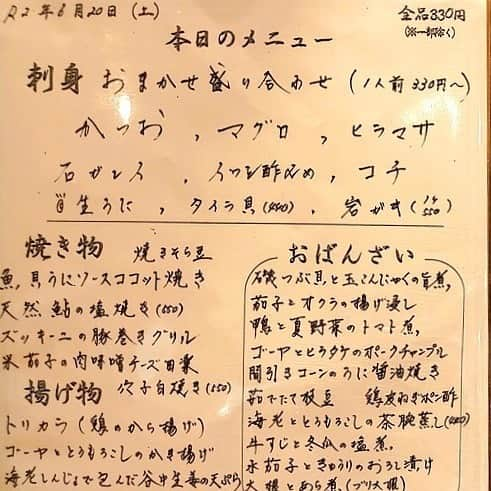 R2年6月20日(土)
全品330円
(※一部除く)
本日のメニュー
刺身 おまかせ盛り合わせ (1人前330円〜)
かつお、マグロ、ヒラマサ
石ガレイ、イワシ酢〆め、コチ
生うに、タイラ貝(440)、岩がき(1ケ550)
焼き物 焼きそら豆
魚、貝うにソースココット焼き
天然鮎の塩焼き(550)
ズッキーニの豚巻きグリル
米茄子の肉味噌チーズ田楽
穴子白焼き(550)
揚げ物
トリカラ(鶏のから揚げ)
ゴーヤととうもろこしのかき揚げ
海老しんじょで包んだ谷中生姜の天ぷら
おばんざい
磯つぶ貝と玉こんにゃくの旨煮
茄子とオクラの揚げ浸し
鴨と夏野菜のトマト煮
ゴーヤととうタケのポークチャンプル
間引きコーンのうに醤油焼き
茹でたて枝豆 鶏皮ねぎポン酢
海老ととうもろこしの茶腕蒸し(440)
牛すじと冬瓜の塩煮
水茄子ときゅうりのおろし漬け
大根とあら煮(ブリ大根)